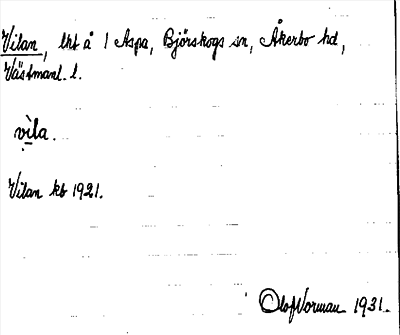 Vilan, lht å 1 Aspa, Björskogs sn, Åkerbo hd,
Västmanl. l.
vìla.
Vilan kb 1921.
Olof Norman 1931.